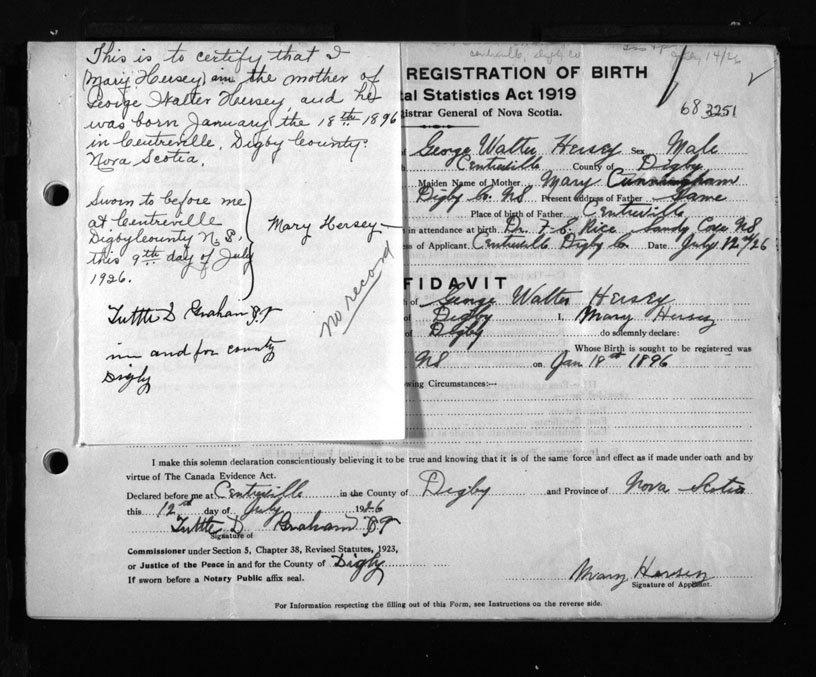 This is to certify that I
(Mary Hersey) am the mother of
George Walter Hersey, and he
was born January the 18th 1896
in Centreville, Digby County.
Nova Scotia.
Sworn to before me
at Centreville
Digby County N S.
this 9th day of July
1926.
Mary Hersey
Tuttle D Graham J.P
in and for county
Digby
no record
centreville, digby co
July 14/26
REGISTRATION OF BIRTH
tal Statistics Act 1919
istrar General of Nova Scotia.
68 3251
George Walter Hersey Sex Male
Centreville County of Digby
Maiden Name of Mother Mary Cunningham
Digby Co. NS Present address of Father Same
Place of birth of Father Centreville
in attendance at birth Dr. F. E. Rice Sandy Cove NS
ss of Applicant. Centreville Digby Co. Date July 12th/26
FIDAVIT
of George Walter Hersey
of Digby I, Mary Hersey
of Digby do solemnly declare:
Whose Birth is sought to be registered was
NS on Jan 18th 1896
wing Circumstances:—
I make this solemn declaration conscientiously believing it to be true and knowing that it is of the same force and effect as if made under oath and by
virtue of The Canada Evidence Act.
Declared before me at Centreville in the County of Digby and Province of Nova Scotia
this 12th day of July 1926
Tuttle D Graham J.P
Signature of
Commissioner under Section 5, Chapter 38, Revised Statutes, 1923,
or Justice of the Peace in and for the County of Digby
If sworn before a Notary Public affix seal.
Mary Hersey
Signature of Applicant.
For Information respecting the filling out of this Form, see Instructions on the reverse side.